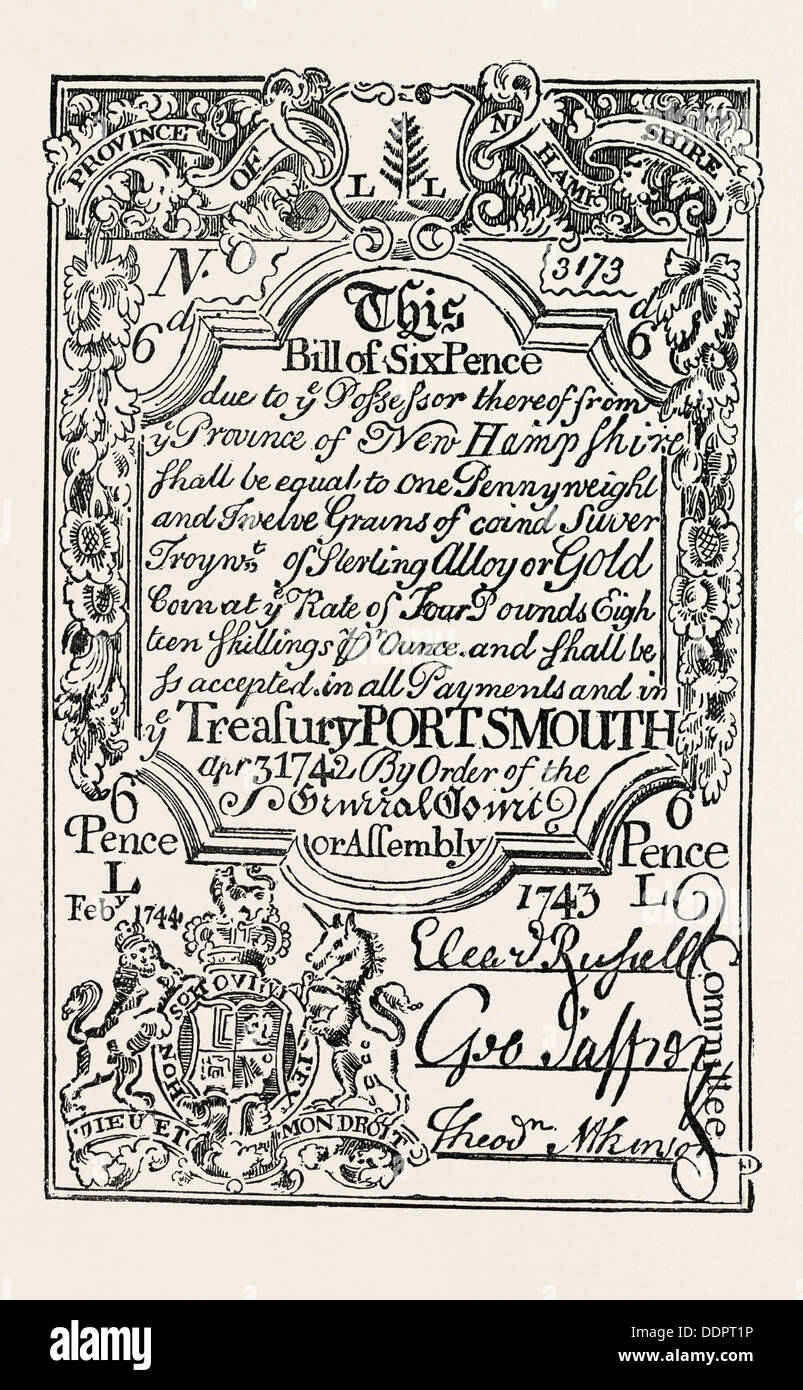 PROVINCE OF N: HAMP SHIRE
L L
No. 3173
6d 6d
This
Bill of Six Pence
due to ye Possessor thereof from
ye Province of New Hampshire
shall be equal to one Pennyweight
and Twelve Grains of coind Silver
Troywt. of Sterling Alloy or Gold
Coin at ye Rate of Four Pounds Eigh
teen Shillings pr Ounce. and shall be
so accepted. in all Payments and in
ye Treasury PORTSMOUTH
Apr 3 1742 By Order of the
General Court
or Assembly
6 Pence L
6 Pence L
Feby. 1744
1743
Eleazr. Russell
Geo Jaffrey
Theodr. Atkinson
Committee
HON SOIT QVI
DIEU ET MON DROIT
alamy
Image ID: DDPT1P
www.alamy.com